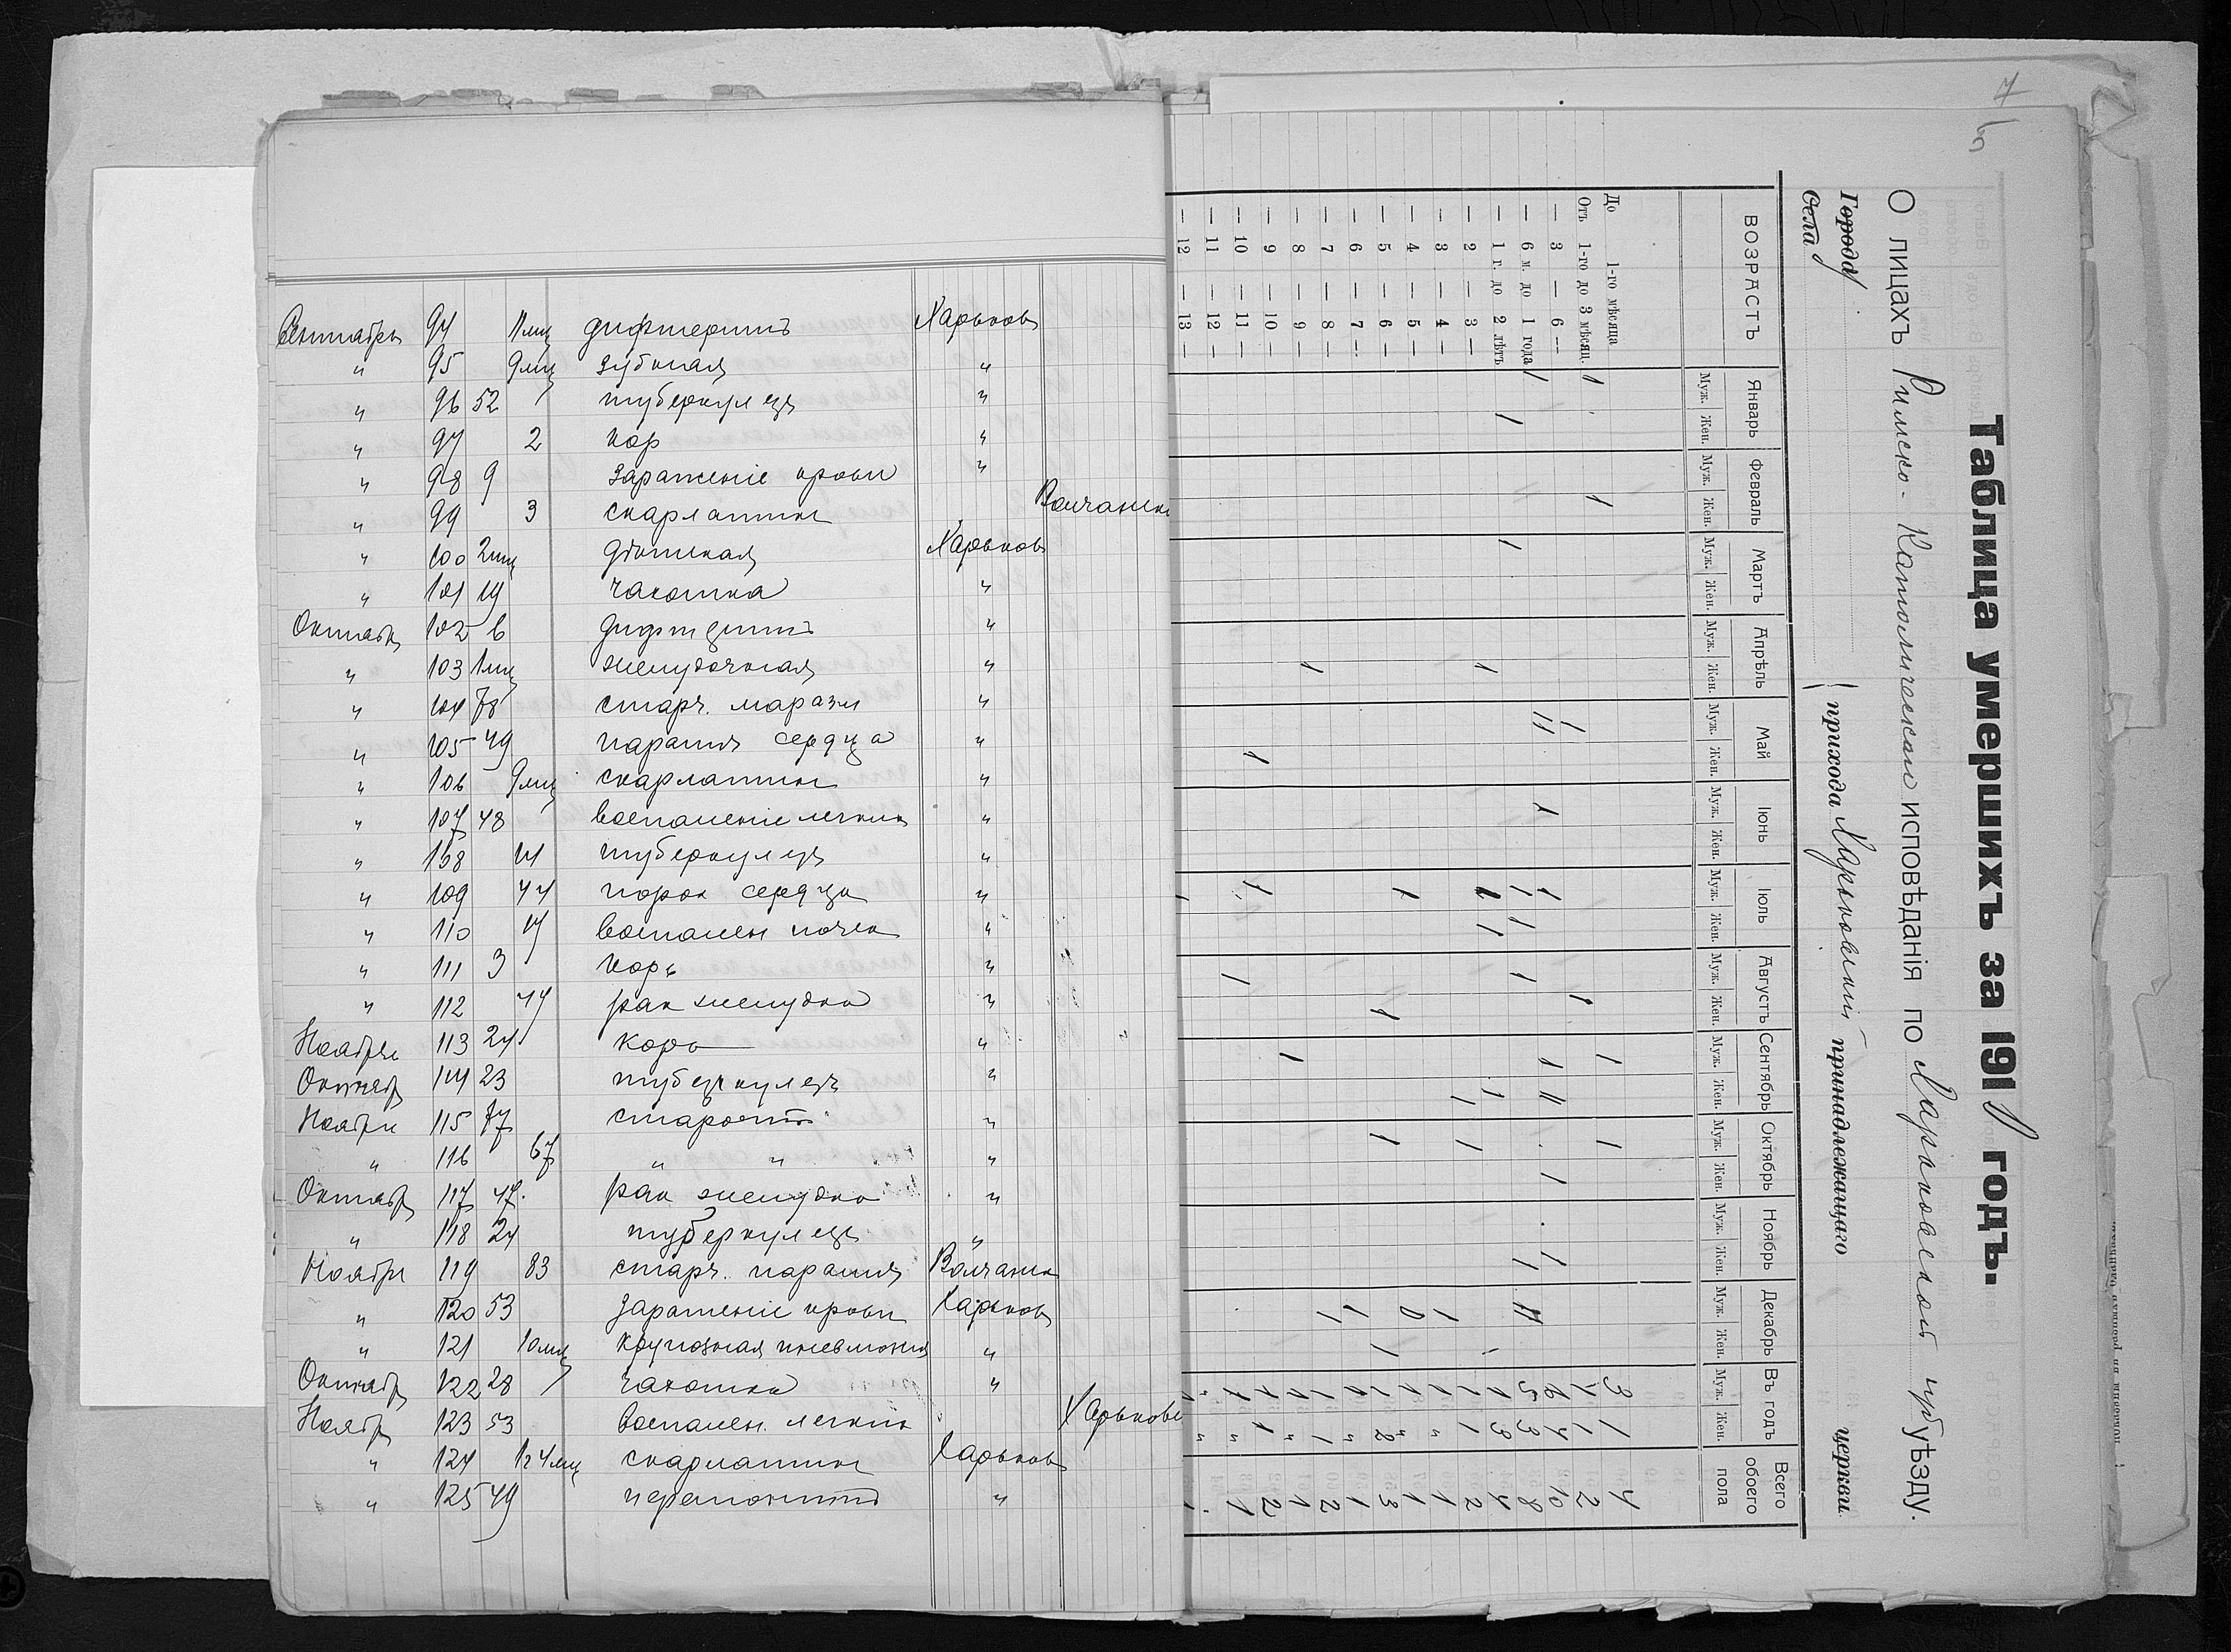 Сентябрь 94 11 мц дифтеритъ Харьковъ
„ 95 9 мц зубная „
„ 96 52 туберкулезъ „
„ 97 2 кор „
„ 98 9 зараженіе крови „
„ 99 3 скарлатина Волчанск
„ 100 2 мц дѣтская Харьковъ
„ 101 19 чахотка „
Октября 102 6 дифтеритъ „
„ 103 1 мц желудочная „
„ 104 78 старч. маразм „
„ 105 49 паралич сердца „
„ 106 9 мц скарлатина „
„ 107 48 воспаленіе легких „
„ 108 туберкулезъ „
„ 109 44 порок сердца „
„ 110 воспален почек „
„ 111 3 корь „
„ 112 рак желудка „
Ноября 113 24 корь „
Октября 114 23 туберкулезъ „
Ноября 115 77 старость „
„ 116 67 „ „ „
Октябр 117 47 рак желудка „
„ 118 24 туберкулезъ „
Ноября 119 83 старч. паралич Волчанск
„ 120 53 зараженіе крови Харьковъ
„ 121 10 мц крупозная пневмонія „
Октябр 122 28 чахотка „
Ноябр 123 53 воспален. легких Харьковъ
„ 124 1 г 4 мц скарлатина Харьковъ
„ 125 49 перетонитъ „
7
5
Таблица умершихъ за 1911 годъ.
О лицахъ Римско-Католическаго исповѣданія по Харьковской губ уѣзду.
Города
Села
прихода Харьковскій принадлежащаго церкви
ВОЗРАСТЪ Январь Февраль Мартъ Апрѣль Май Іюнь Іюль Августъ Сентябрь Октябрь Ноябрь Декабрь Въ годъ Всего обоего пола
Муж. Жен. Муж. Жен. Муж. Жен. Муж. Жен. Муж. Жен. Муж. Жен. Муж. Жен. Муж. Жен. Муж. Жен. Муж. Жен. Муж. Жен. Муж. Жен. Муж. Жен.
До 1-го мѣсяца 1 1 1 3 1 4
Отъ 1-го до 3 мѣсяц. 1 1 1 1 2
— 3 — 6 — 1 11 1 1 1 11 1 1 6 4 10
— 6 м. до 1 года 1 1 1 1 1 5 3 8
— 1 г. до 2 лѣтъ 1 1 1 1 3 4
— 2 — 3 — 1 1 1 1 2
— 3 — 4 — 1 1 „ 1
— 4 — 5 — 1 0 1 „ 1
— 5 — 6 — 1 1 1 1 2 3
— 6 — 7 — 1 1 „ 1
— 7 — 8 — 1 1 1 1 2
— 8 — 9 — 1 „ 1
— 9 — 10 — 1 1 1 2
— 10 — 11 — 1 1 1 „ 1
— 11 — 12 —
— 12 — 13 — 1 1 „ 1